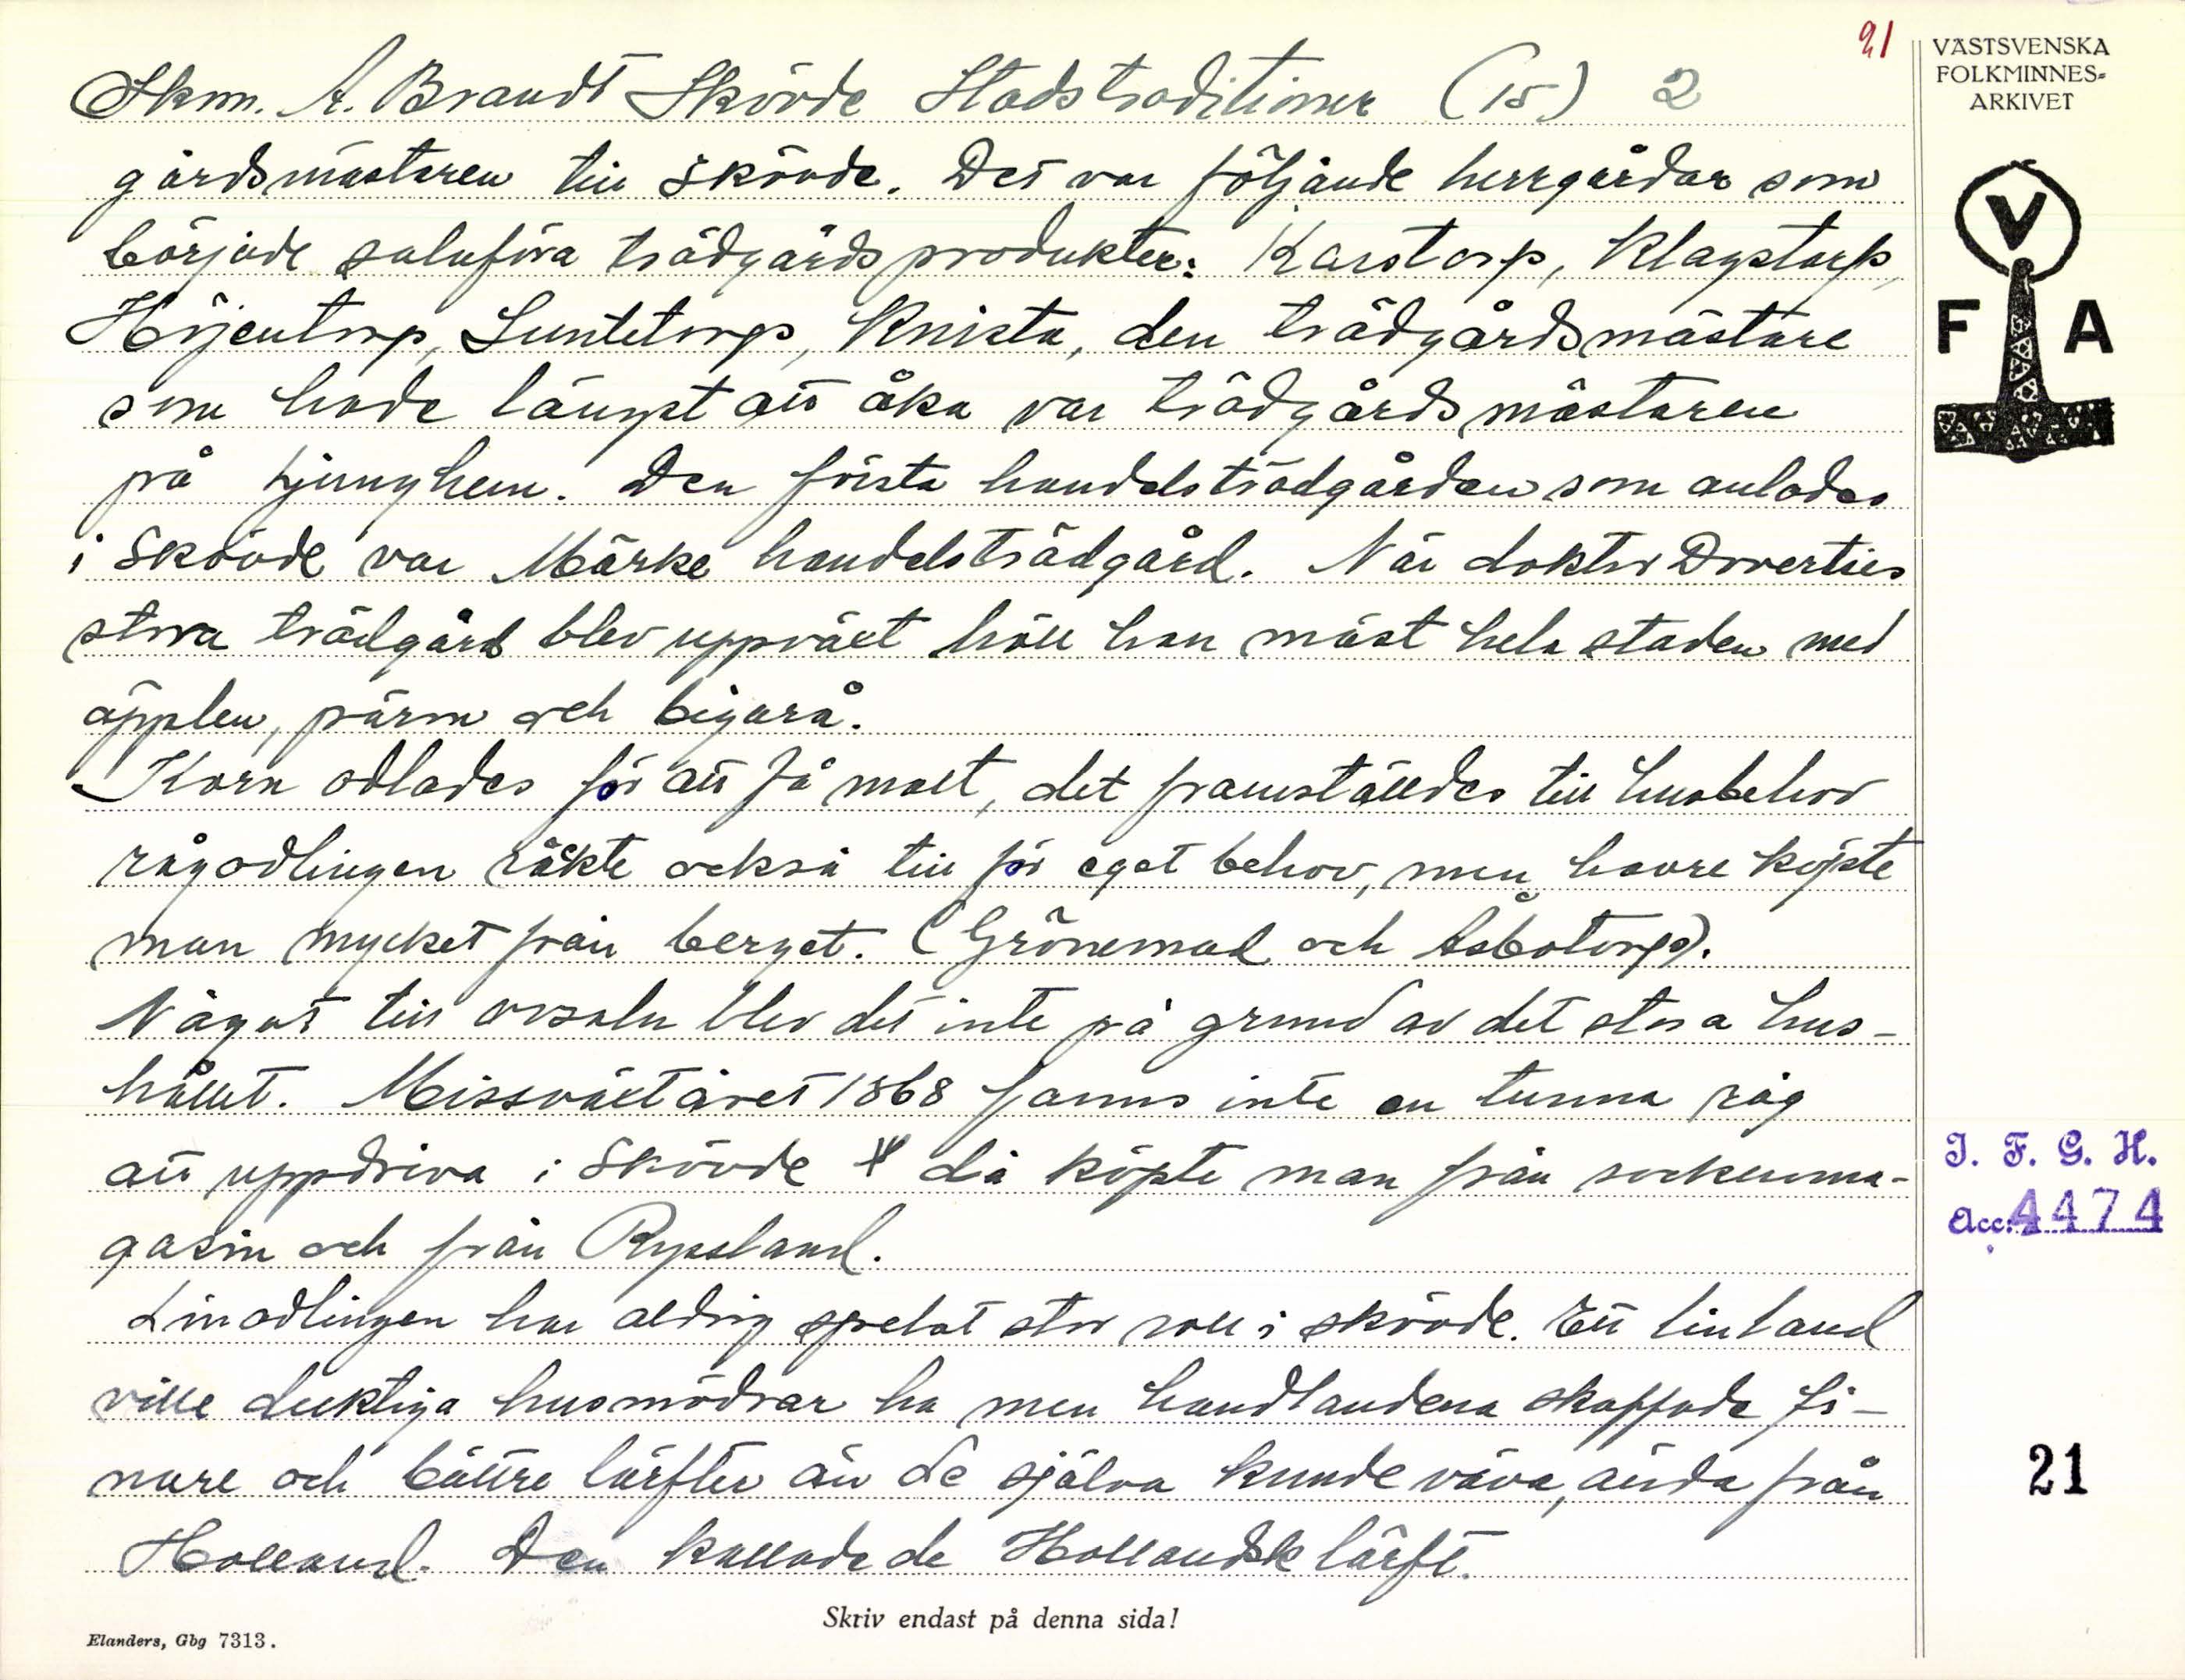 21
VÄSTSVENSKA
FOLKMINNES-
ARKIVET
Skm. A. Brandt Skövde Stadstraditioner (15) 2
gårdsmästaren till Skövde. Det var följande herrgårdar som
började saluföra trädgårdsprodukter: Karstorp, Klagstorp,
Höjentorp, Luntetorp, Knista, den trädgårdsmästare
som hade längst att åka var trädgårdsmästaren
på Ljunghem. Den första handelsträdgården som anlades
i Skövde var Märke handelsträdgård. När doktor Doverties
stora trädgård blev uppväxt höll han mäst hela staden med
äpplen, päron och bigarå.
Korn odlades för att få malt, det framställdes till husbehov
rågodlingen räkte också till för eget behov, men havre köpte
man mycket från berget. (Grönemad och Asbotorp).
Något till avsalu blev det inte på grund av det stora hus-
hållet. Missväxtåret 1868 fanns inte en tunna råg
att uppdriva i Skövde då köpte man från sockenma-
gasin och från Ryssland.
Linodlingen har aldrig spelat stor roll i skövde. Ett linland
ville duktiga husmödrar ha men handlandena skaffade fi-
nare och bättre lärfter än de själva kunde väva, ända från
Holland. Den kallade de Hollandsk lärft.
Skriv endast på denna sida!
Elanders, Gbg 7313.
V
F A
I. F. G. H.
Acc. 4474
21